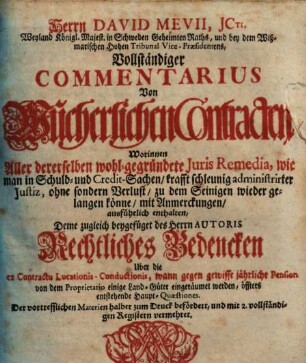 Herrn DAVID MEVII, JCti,
Weyland Königl. Majest. in Schweden Geheimten Raths, und bey dem Wiß-
marischen Hohen Tribunal Vice-Præsidentens,
Vollständiger
COMMENTARIUS
Von
Wucherlichen Contracten,
Worinnen
Aller dererselben wohl-gegründete Juris Remedia, wie
man in Schuld- und Credit-Sachen/ krafft schleunig administrirter
Justiz, ohne sondern Verlust/ zu dem Seinigen wieder ge-
langen könne/ mit Anmerckungen/
ausführlich enthalten;
Deme zugleich beygefüget des Herrn AUTORIS
Rechtliches Bedencken
Uber die
ex Contractu Locationis-Conductionis, wann gegen gewisse jährliche Pension
von dem Proprietario einige Land-Güter eingeräumet werden, öffters
entstehende Haupt-Quæstiones.
Der vortrefflichen Materien halber zum Druck befördert, und mit 2. vollständi-
gen Registern vermehret,